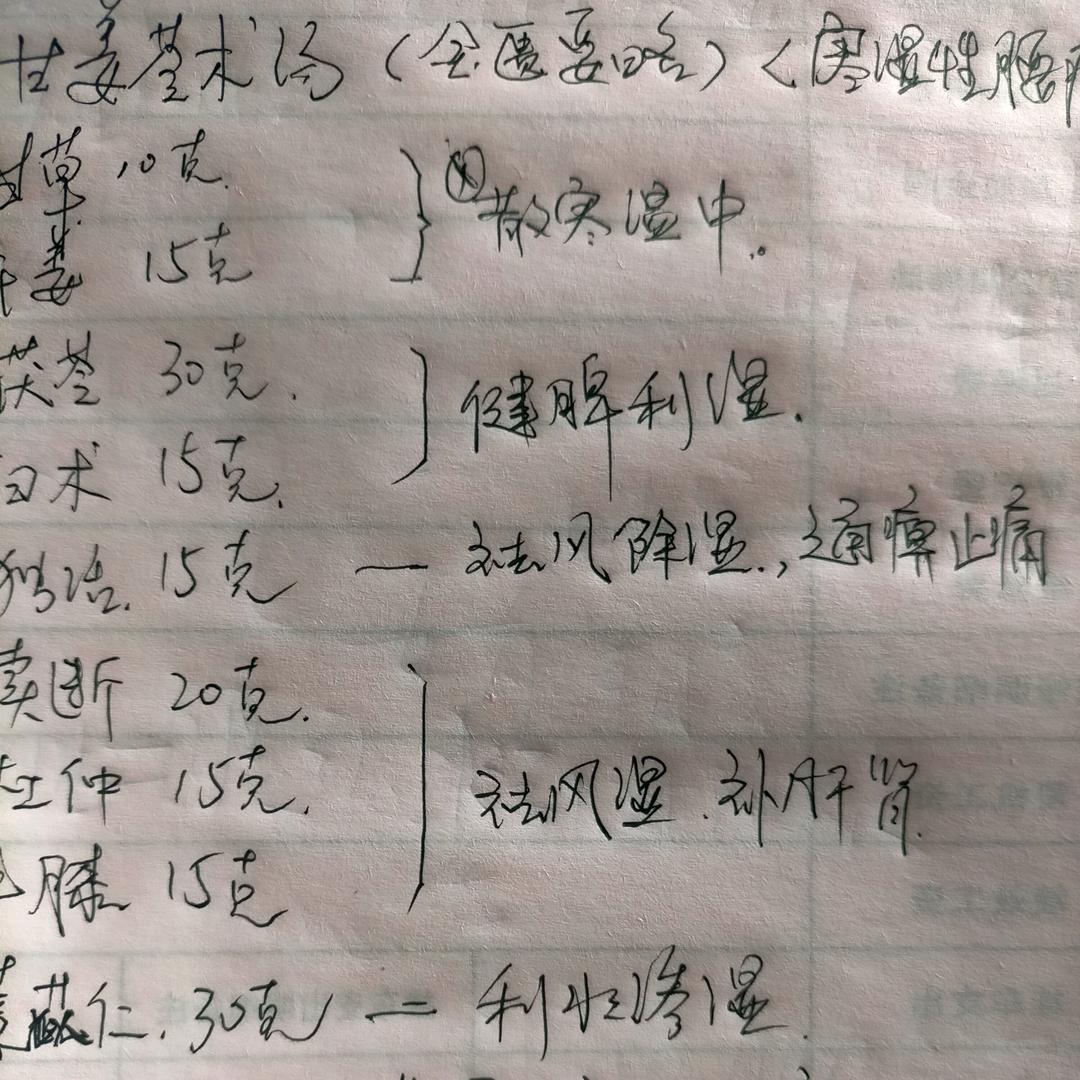 甘姜苓术汤（金匮要略）<寒湿性腰
甘草 10克.
散寒温中.
干姜 15克
茯苓 30克.
健脾利湿.
白术 15克.
独活. 15克 — 祛风除湿., 通痹止痛
续断 20克.
杜仲 15克.
祛风湿.补肝肾.
牛膝 15克
薏苡仁. 30克 = 利水渗湿.